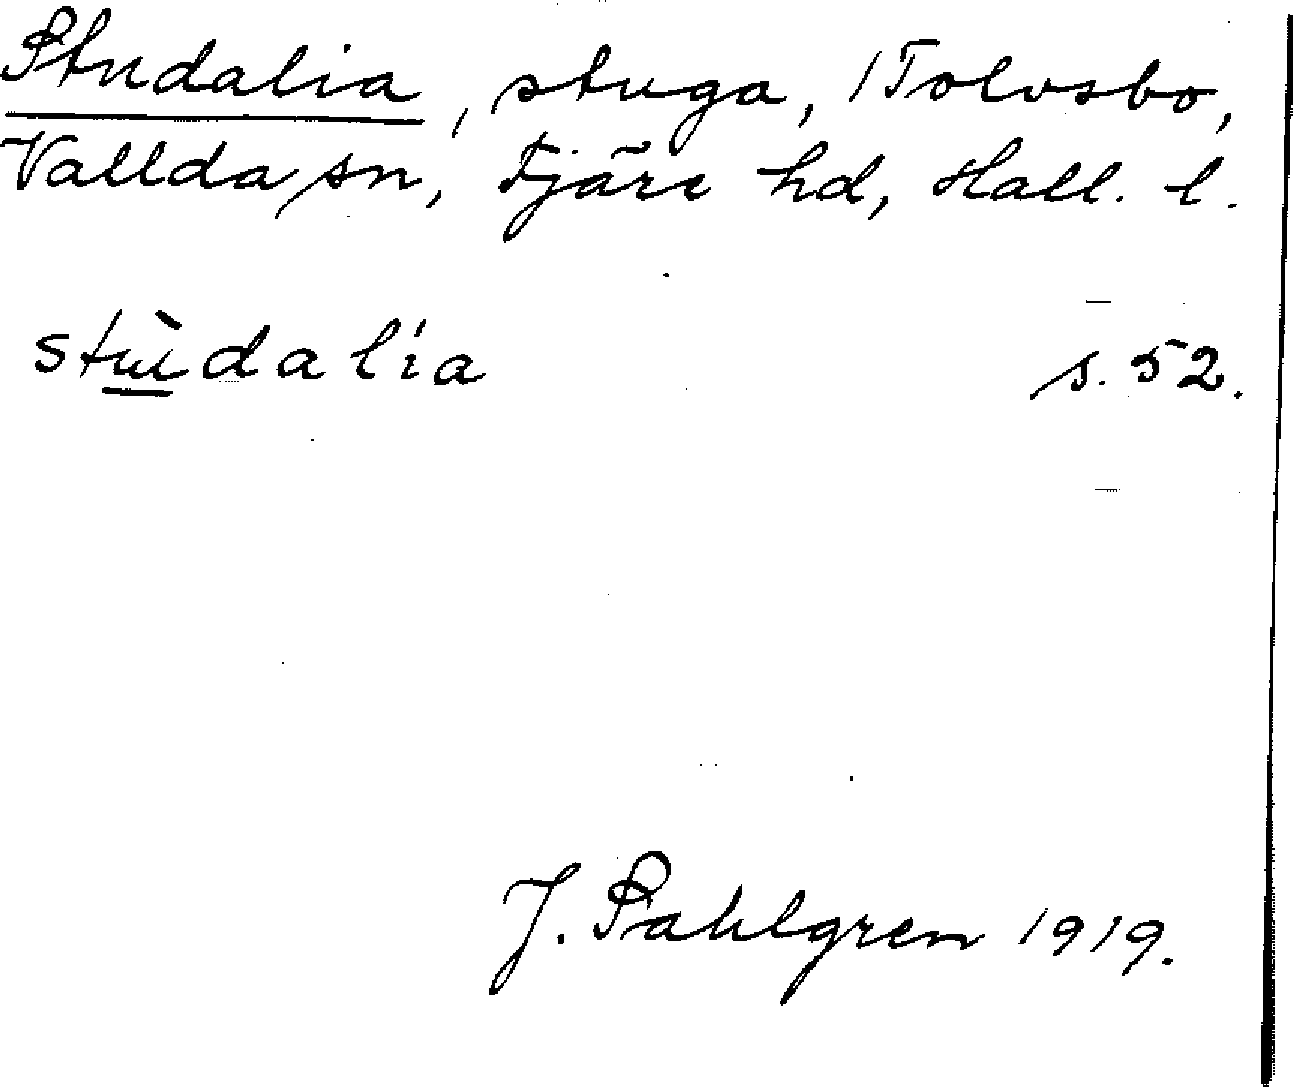 Studalia, stuga, 1 Tolvsbo,
Vallda sn, Fjäre hd, Hall. l.
stù̲dalia s. 52.
J. Sahlgren 1919.